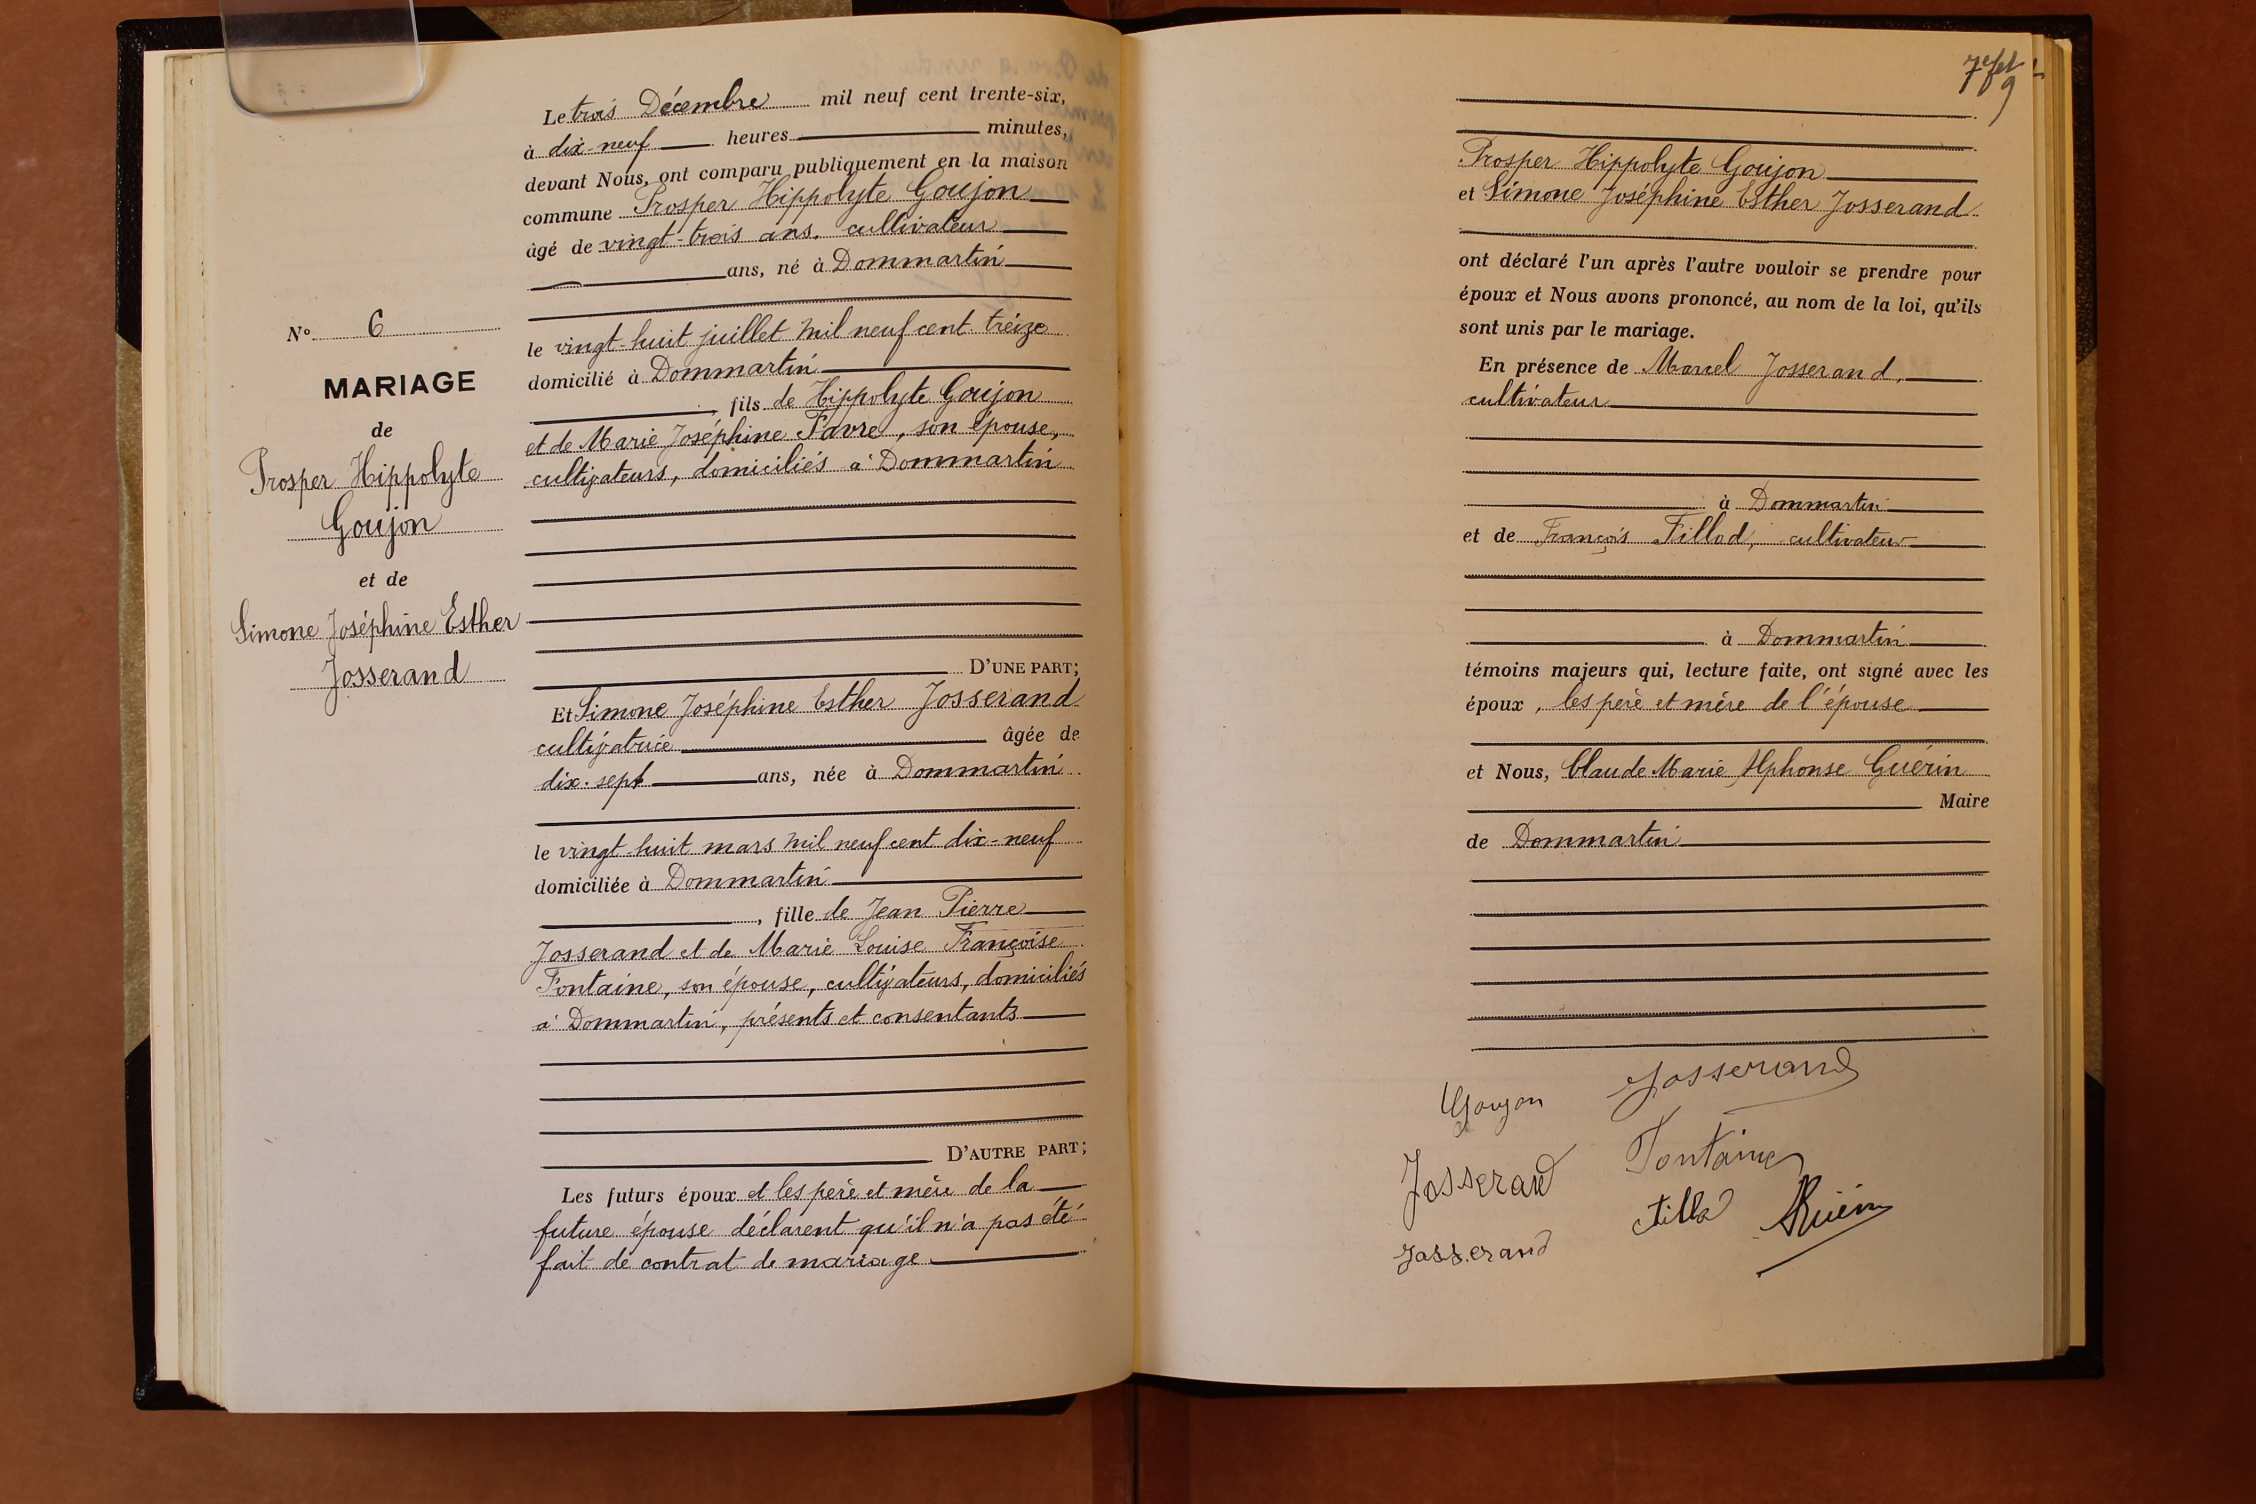 Le trois Décembre mil neuf cent trente-six,
à dix-neuf heures minutes,
devant Nous, ont comparu publiquement en la maison
commune Prosper Hippolyte Goujon
âgé de vingt-trois ans, cultivateur
ans, né à Dommartin
le vingt-huit juillet mil neuf cent treize
domicilié à Dommartin
, fils de Hippolyte Goujon
et de Marie Joséphine Favre, son épouse,
cultivateurs, domiciliés à Dommartin
D'UNE PART;
Et Simone Joséphine Esther Josserand
cultivatrice âgée de
dix-sept ans, née à Dommartin
le vingt-huit mars mil neuf cent dix-neuf
domiciliée à Dommartin
, fille de Jean Pierre
Josserand et de Marie Louise Françoise
Fontaine, son épouse, cultivateurs, domiciliés
à Dommartin, présents et consentants
D'AUTRE PART;
Les futurs époux et les père et mère de la
future épouse déclarent qu'il n'a pas été
fait de contrat de mariage
N° 6
MARIAGE
de
Prosper Hippolyte
Goujon
et de
Simone Joséphine Esther
Josserand
Prosper Hippolyte Goujon
et Simone Joséphine Esther Josserand
ont déclaré l'un après l'autre vouloir se prendre pour
époux et Nous avons prononcé, au nom de la loi, qu'ils
sont unis par le mariage.
En présence de Marcel Josserand,
cultivateur
à Dommartin
et de François Fillod, cultivateur
à Dommartin
témoins majeurs qui, lecture faite, ont signé avec les
époux, les père et mère de l'épouse
et Nous, Claude Marie Alphonse Guérin
Maire
de Dommartin
Goujon Josserand
Josserand Fontaine
Josserand Fillod Guérin